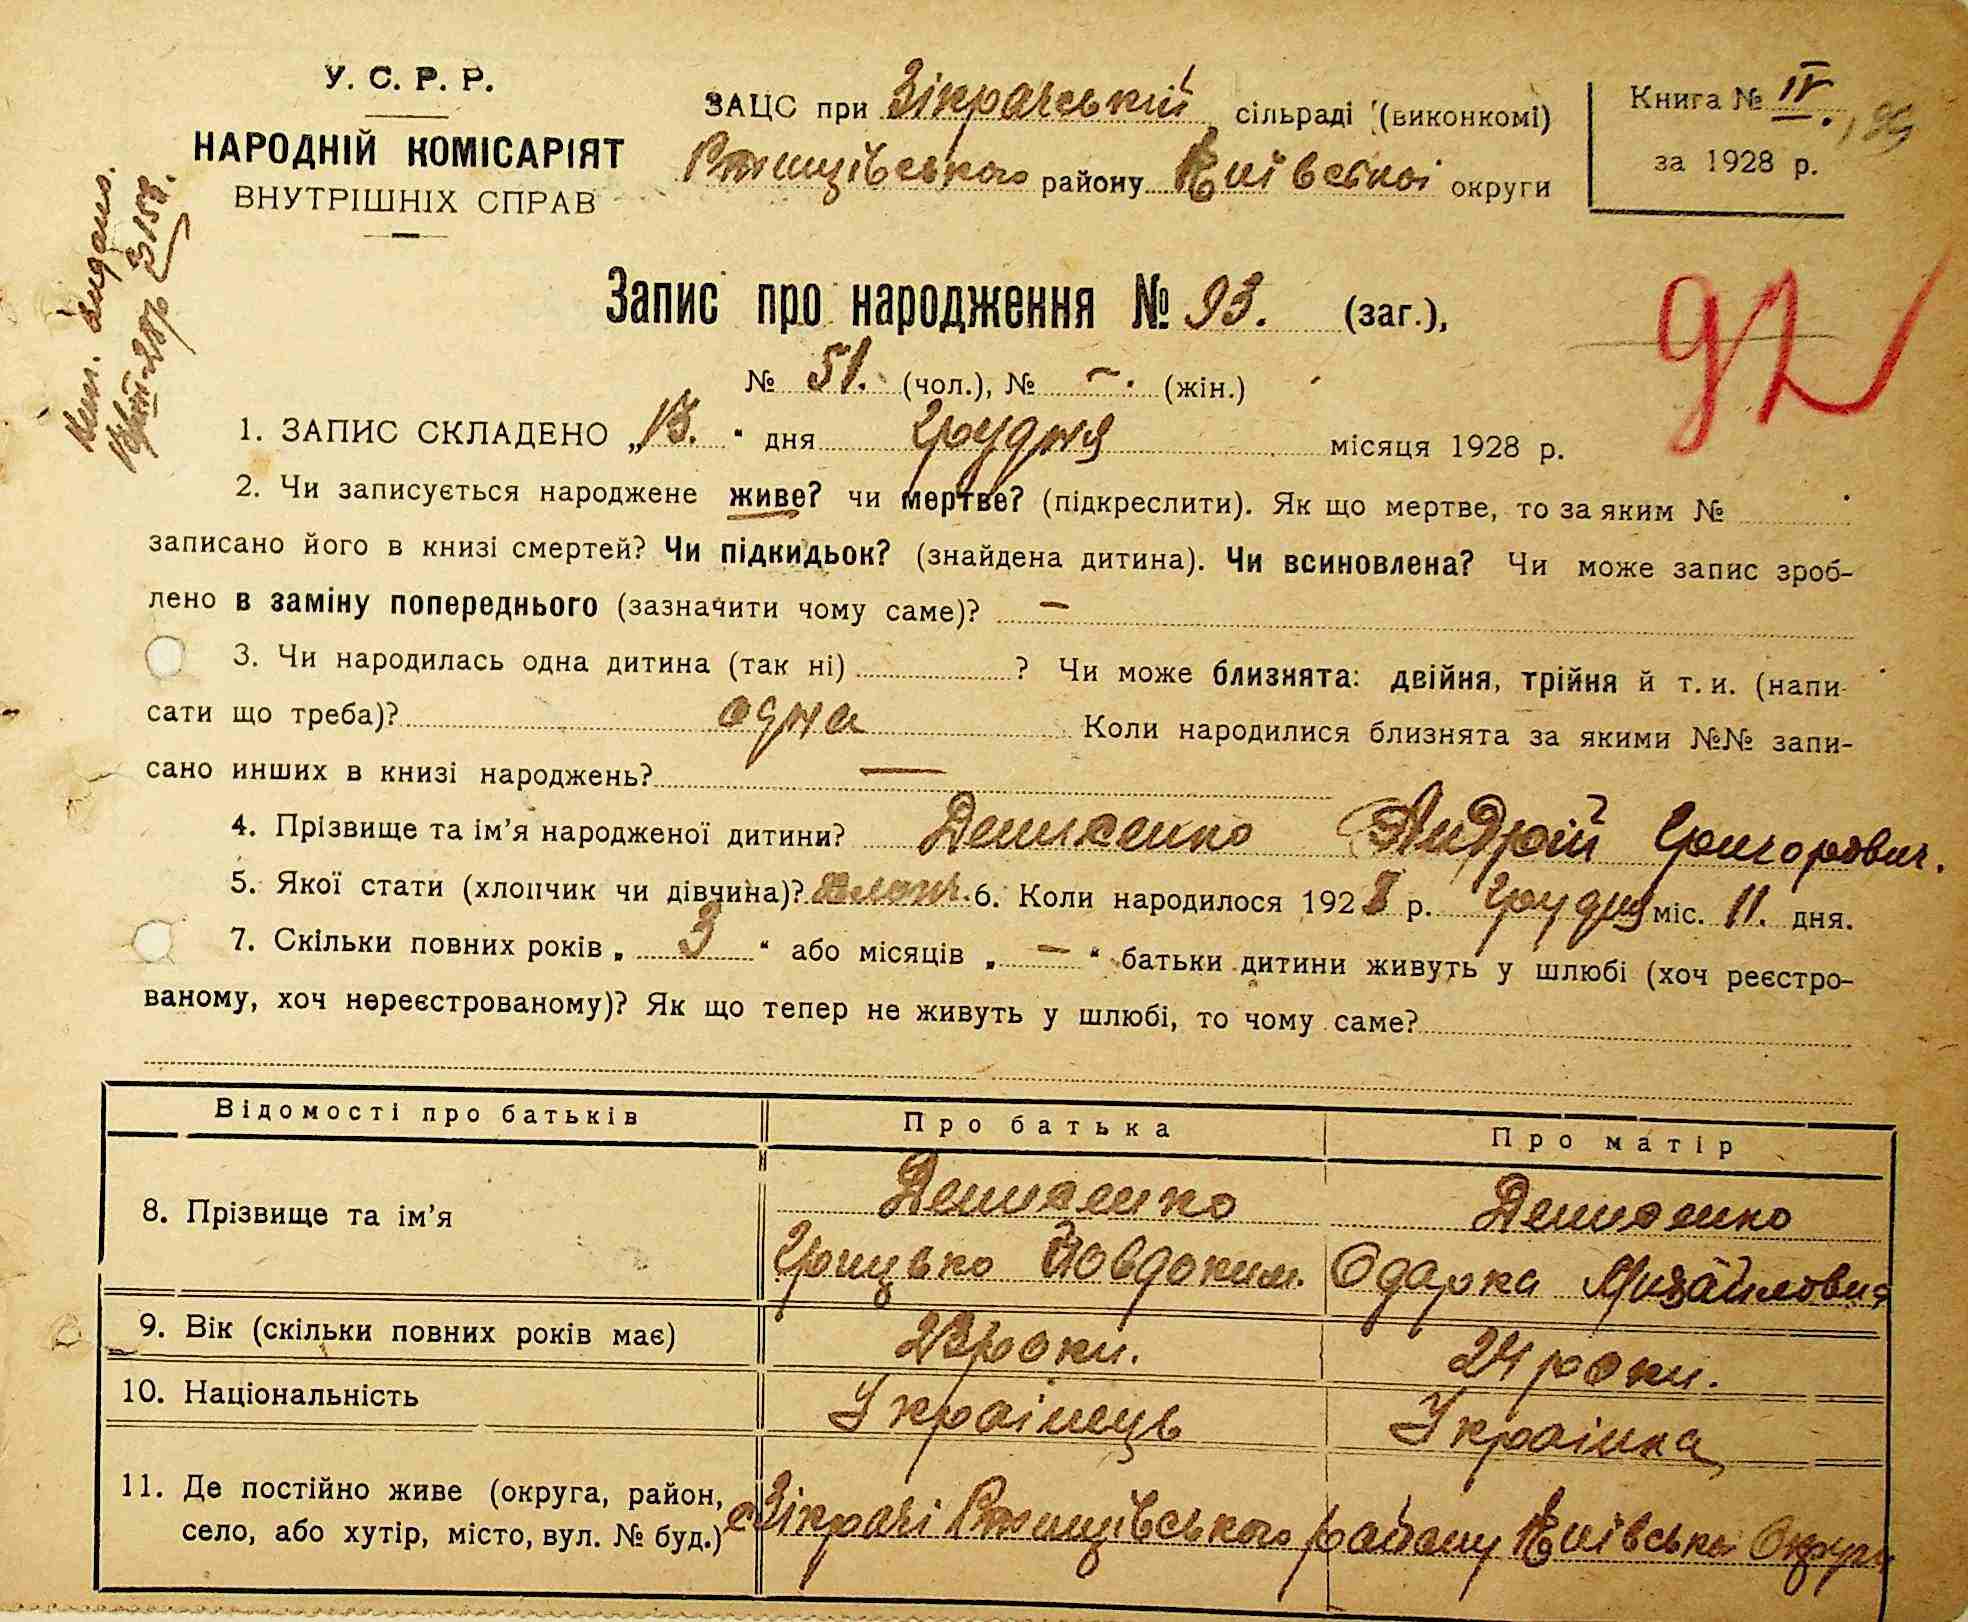 У. С. Р. Р.
НАРОДНІЙ КОМІСАРІЯТ
ВНУТРІШНІХ СПРАВ
ЗАЦС при Зікрачській сільраді (виконкомі)
Ржищівського району Київської округи
Книга № IV.
за 1928 р.
Запис про народження № 93. (заг.),
92
№ 51. (чол.), № –. (жін.)
1. ЗАПИС СКЛАДЕНО „13." дня Грудня місяця 1928 р.
2. Чи записується народжене живе? чи мертве? (підкреслити). Як що мертве, то за яким №
записано його в книзі смертей? Чи підкидьок? (знайдена дитина). Чи всиновлена? Чи може запис зроб-
лено в заміну попереднього (зазначити чому саме)? –
3. Чи народилась одна дитина (так ні) ? Чи може близнята: двійня, трійня й т. и. (напи-
сати що треба)? одна Коли народилися близнята за якими №№ запи-
сано инших в книзі народжень? —
4. Прізвище та ім'я народженої дитини? Денисенко Андрій Григорович.
5. Якої стати (хлопчик чи дівчина)? Хлопч. 6. Коли народилося 1928 р. Грудня міс. 11. дня.
7. Скільки повних років „ 3 " або місяців „ – " батьки дитини живуть у шлюбі (хоч реєстро-
ваному, хоч нереєстрованому)? Як що тепер не живуть у шлюбі, то чому саме?
Відомості про батьків Про батька Про матір
8. Прізвище та ім'я
Денисенко
Грицько Йовдоким.
Денисенко
Одарка Михайловна
9. Вік (скільки повних років має) 23 роки. 24 роки.
10. Національність Українець Українка
11. Де постійно живе (округа, район,
село, або хутір, місто, вул. № буд.)
с Зікрачі Ржищівського району Київської Округи